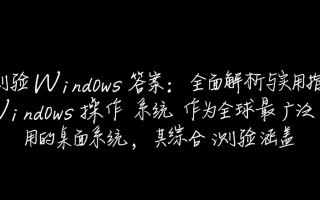 验Windows答案：全面解析与实用
indows操作系统作为全球最广泛
用的桌面系统，其综合测验涵盖